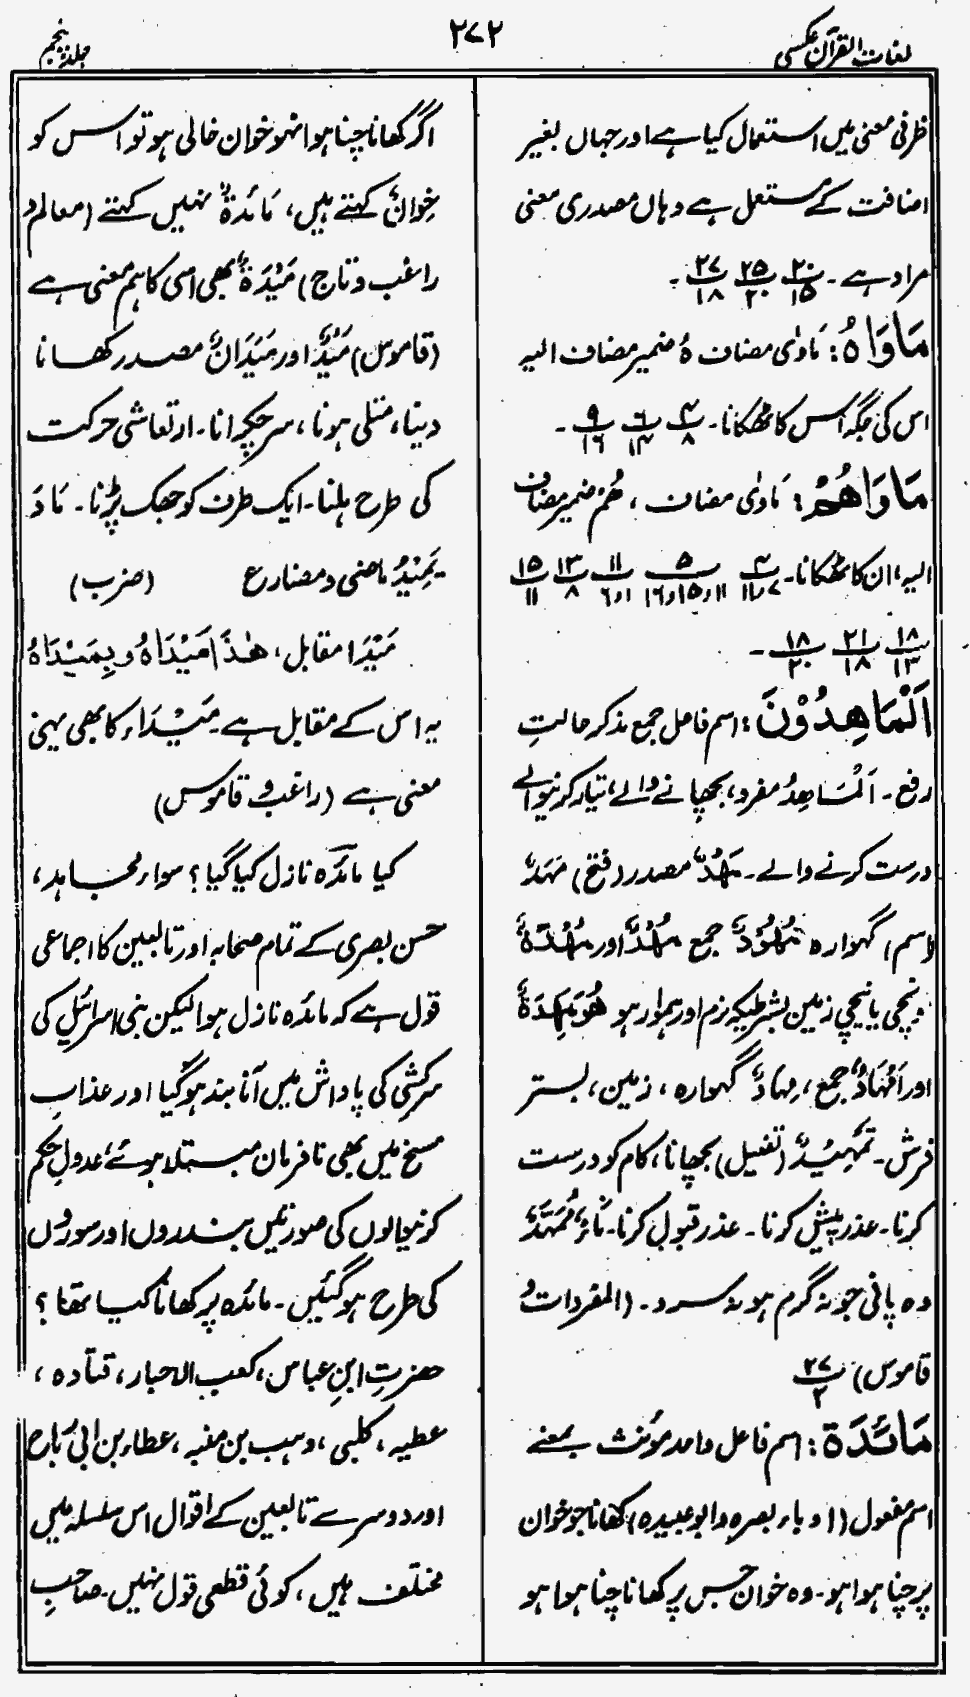 لغات القرآن عکسی
۲۷۲
جلد پنجم
ظرفی معنی میں استعمال کیا ہے اور جہاں بغیر
اضافت کے مستعمل ہے وہاں مصدری معنی
مراد ہے۔ ۲۰/۱۵ ۲۵/۲۰ ۲۷/۱۸ ۔
مَاوَاہُ: مَاوٰی مضاف ہُ ضمیر مضاف الیہ
اس کی جگہ اس کا ٹھکانا۔ ۴/۸ ۶/۱۴ ۹/۱۶ ۔
مَاوَاھُمْ: مَاوٰی مضاف ، ھُمْ ضمیر مضاف
الیہ، ان کا ٹھکانا۔ ۴/۷و۱۱ ۵/۱۱و۱۵و۱۶ ۱۱/۱و۶ ۱۳/۸ ۱۵/۱۱
۱۸/۱۳ ۲۱/۱۸ ۱۸/۲۰ ۔
اَلْمَاھِدُوْنَ: اسم فاعل جمع مذکر حالتِ
رفع۔ اَلْمَاھِدُ مفرد، بچھانے والے، تیار کرنیوالے
درست کرنے والے۔ مَہْدٌ مصدر (فتح) مَہَدٌ
(اسم) گہوارہ مُہُوْدٌ جمع مُہْدٌ اور مُہْدَۃٌ
اونچی یا نیچی زمین بشرطیکہ نرم اور ہموار ہو
اور اَمْہَادٌ جمع، مِہَادٌ گہوارہ ، زمین، بستر
فرش۔ تَمْہِیْدٌ (تفعیل) بچھانا، کام کو درست
کرنا۔ عذر پیش کرنا۔ عذر قبول کرنا۔ مَاءٌ مُمَہَّدٌ
وہ پانی جو نہ گرم ہو نہ سرد۔ (المفردات و
قاموس) ۲۷/۲
مَائِدَۃ: اسم فاعل واحد مؤنث بمعنے
اسم مفعول (ادباء بصرہ و ابو عبیدہ) کھانا جو خوان
پر چنا ہوا ہو۔ وہ خوان جس پر کھانا چنا ہوا ہو
اگر کھانا چنا ہوا نہو خوان خالی ہو تو اس کو
خِوَانٌ کہتے ہیں، مَائِدَۃٌ نہیں کہتے (معالم و
راغب و تاج) مَیْدَۃٌ بھی اسی کا ہم معنی ہے
(قاموس) مَیْدٌ اور مَیَدَانٌ مصدر کھانا
دینا، متلی ہونا ، سر چکرانا۔ ارتعاشی حرکت
کی طرح ہلنا۔ ایک طرف کو جھک پڑنا۔ مَادَ
یَمِیْدُ ماضی و مضارع (ضرب)
مَیْدَا مقابل، ھٰذَا مَیْدَاہُ وبِمَیْدَاہُ
یہ اس کے مقابل ہے۔ مَیْدَاء کا بھی یہی
معنی ہے (راغب و قاموس)
کیا مائدہ نازل کیا گیا؟ سواء مجاہد،
حسن بصری کے تمام صحابہ اور تابعین کا اجماعی
قول ہے کہ مائدہ نازل ہوا لیکن بنی اسرائیل کی
سرکشی کی پاداش میں آنا بند ہو گیا اور عذابِ
مسخ میں بھی نافرمان مبتلا ہوئے، عدولِ حکم
کرنیوالوں کی صورتیں بندروں اور سوروں
کی طرح ہو گئیں۔ مائدہ پر کھانا کیا تھا ؟
حضرت ابن عباس، کعب الاحبار ، قتادہ ،
عطیہ ، کلبی ، وہب بن منبہ ، عطاء بن ابی رباح
اور دوسرے تابعین کے اقوال اس سلسلہ میں
مختلف ہیں ، کوئی قطعی قول نہیں۔ صاحبِ